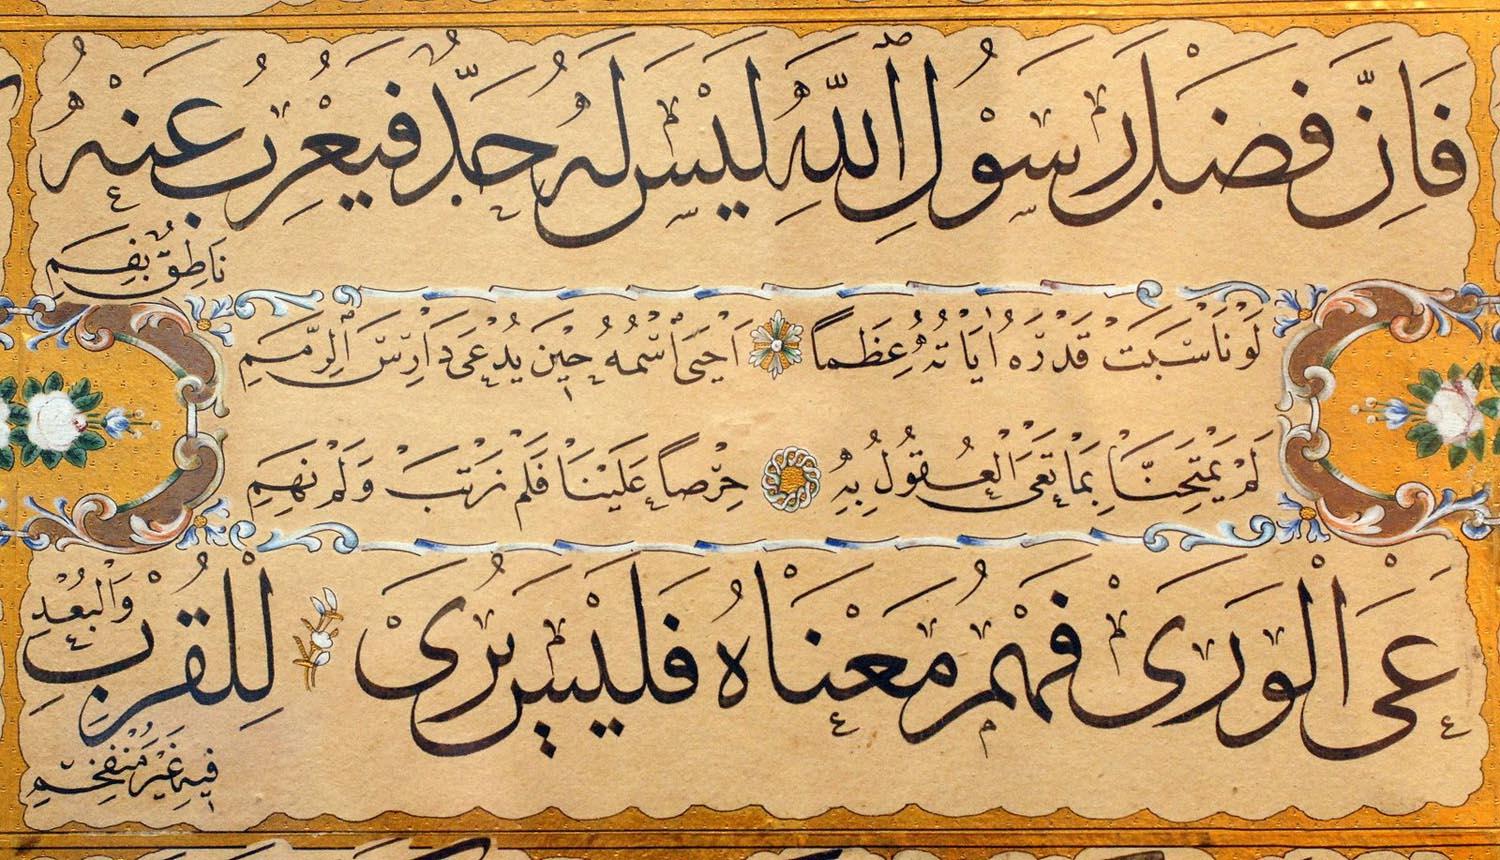 فَاِنَّ فَضْلَ رَسُوْلِ اللّٰهِ لَيْسَ لَهُ حَدٌّ فَيُعْرِبُ عَنْهُ
نَاطِقٌ بِفَمِ
لَوْ نَاسَبَتْ قَدْرَهُ اٰيَاتُهُ عِظَمًا اَحْيَى اسْمُهُ حِيْنَ يُدْعَى دَارِسَ الرِّمَمِ
لَمْ يَمْتَحِنَّا بِمَا تَعْىَ الْعُقُولُ بِهِ حِرْصًا عَلَيْنَا فَلَمْ نَرْتَبْ وَلَمْ نَهِمِ
اَعْىَ الْوَرَى فَهْمُ مَعْنَاهُ فَلَيْسَ يُرَى لِلْقُرْبِ وَالْبُعْدِ
فِيهِ غَيْرُ مُنْفَحِمِ